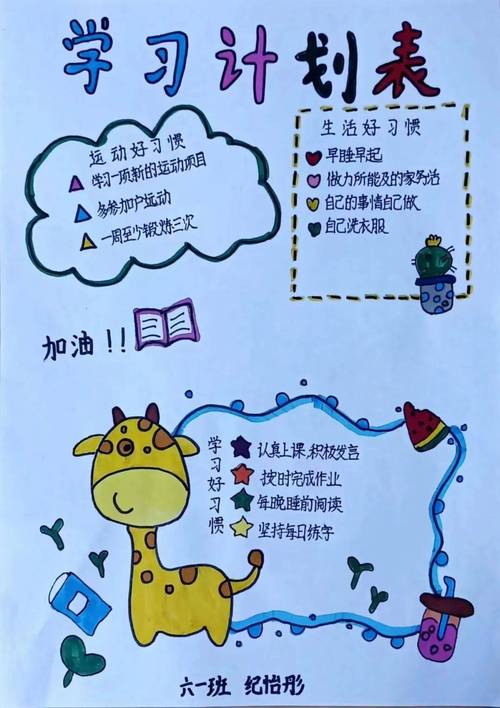 学习计划表
运动好习惯
学习一项新的运动项目
多参加户运动
一周至少锻炼三次
生活好习惯
早睡早起
做力所能及的家务活
自己的事情自己做
自己洗衣服
加油!!
学习好习惯
认真上课,积极发言
按时完成作业
每晚睡前阅读
坚持每日练字
六一班 纪怡彤